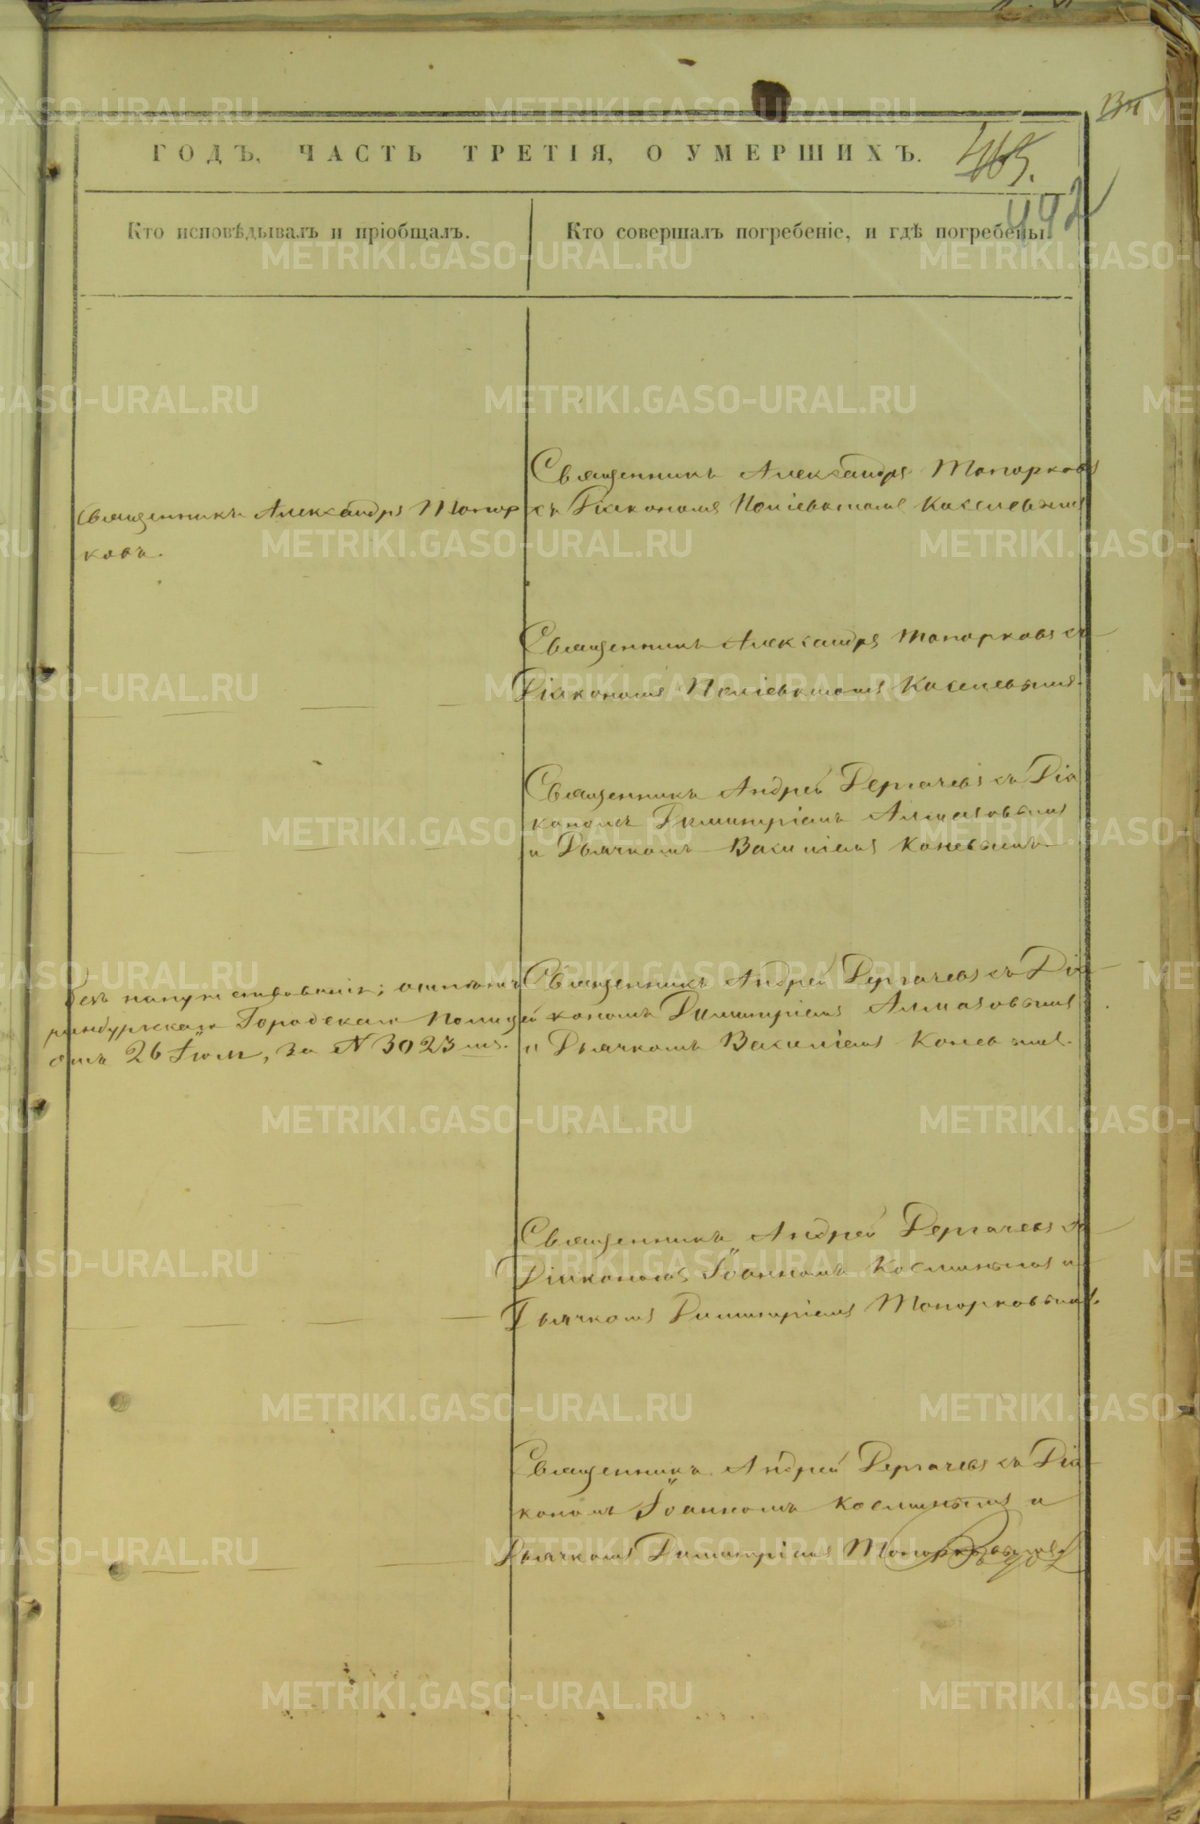 ГОДЪ, ЧАСТЬ ТРЕТІЯ, О УМЕРШИХЪ.
465.
442
Кто исповѣдывалъ и пріобщалъ.
Кто совершалъ погребеніе, и гдѣ погребены.
Священникъ Александръ Топорковъ
Священникъ Александръ Топор
ковъ.
съ Діакономъ
Священникъ Александръ Топорковъ съ
Діакономъ
Священникъ Андрей Дергачевъ съ Діа
кономъ Димитріемъ Алмазовымъ
и Дьячкомъ Василіемъ Коневымъ.
Безъ напутствованія;
Городской Полиціи
отъ 26 Іюля, за N 3023мъ.
Священникъ Андрей Дергачевъ съ Діа
кономъ Димитріемъ Алмазовымъ
и Дьячкомъ Василіемъ Коневымъ.
Священникъ Андрей Дергачевъ съ
Діакономъ Іоанномъ Косминымъ и
Дьячкомъ Димитріемъ Топорковымъ.
Священникъ Андрей Дергачевъ съ Діа
кономъ Іоанномъ Косминымъ и
Дьячкомъ Димитріемъ Топорковымъ.
METRIKI.GASO-URAL.RU